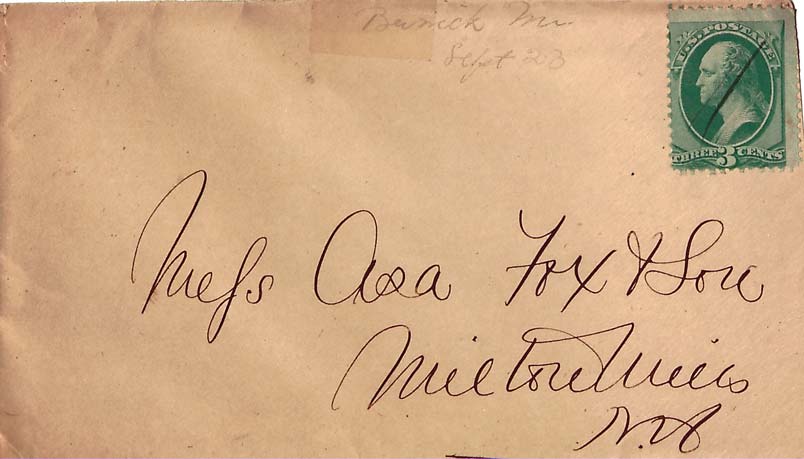 Berwick Me.
Sept 23
U.S. POSTAGE
THREE 3 CENTS
Mess Asa Fox & Son
Milton Mills
N.H